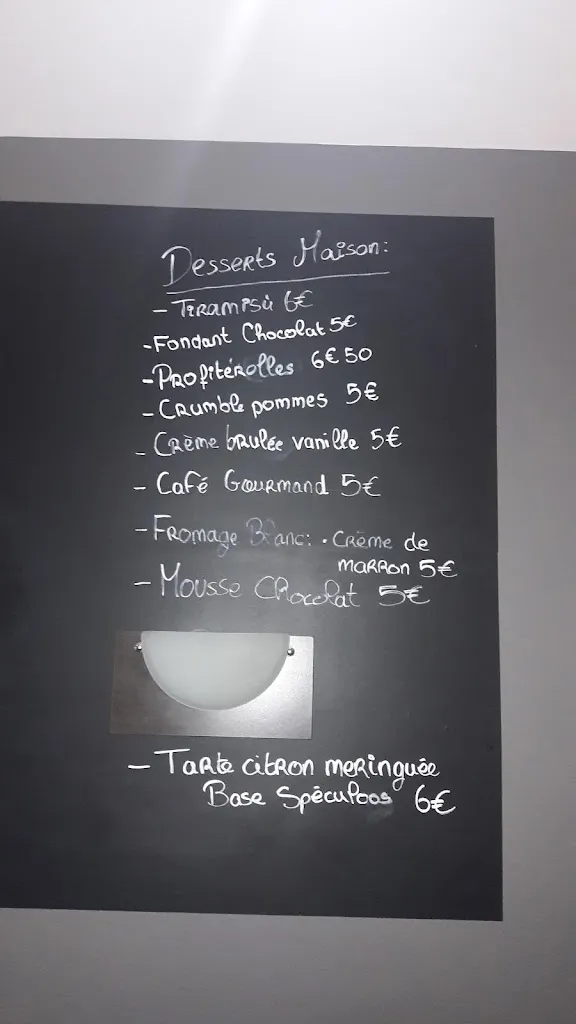 Desserts Maison:
- Tiramisù 6€
- Fondant Chocolat 5€
- Profitérolles 6€50
- Crumble pommes 5€
- Crème brulée vanille 5€
- Café Gourmand 5€
- Fromage Blanc: • Crème de
marron 5€
- Mousse Chocolat 5€
- Tarte citron meringuée
Base Spéculoos 6€